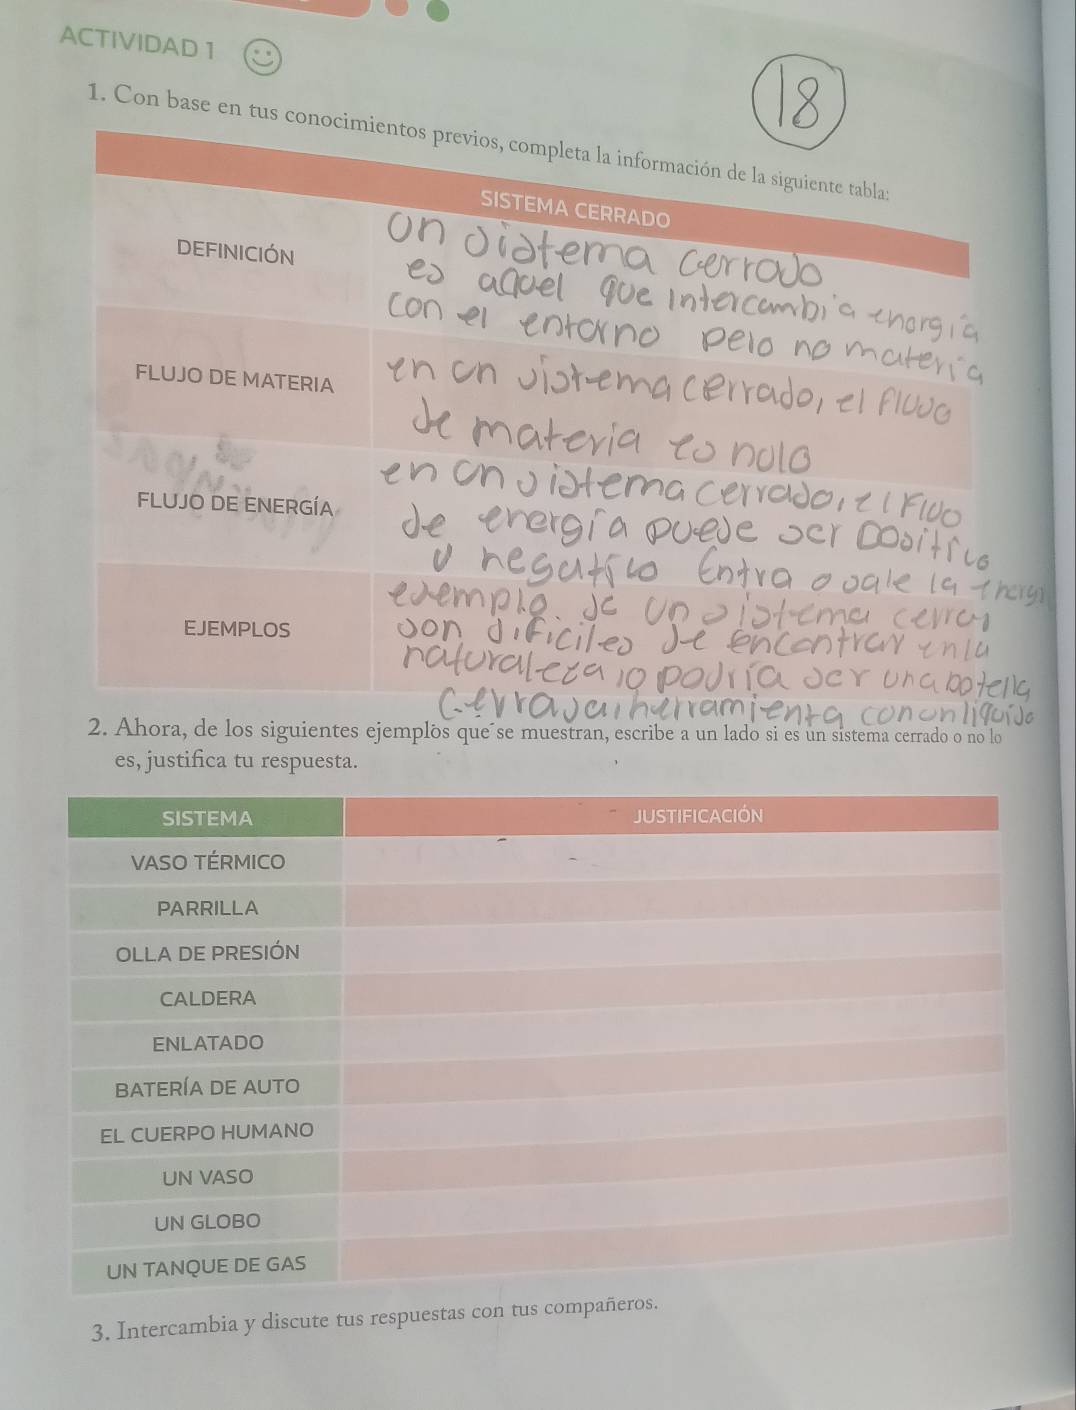 ACTIVIDAD 1
18
1. Con base en tus conocimientos previos, completa la información de la siguiente tabla:
SISTEMA CERRADO
DEFINICIÓN
un sistema cerrado
es aquel que intercambia energia
con el entorno pelo no materia
FLUJO DE MATERIA
en un sistema cerrado, el flujo
de materia es nulo
FLUJO DE ENERGÍA
en un sistema cerrado, el flujo
de energía puede ser positivo
y negativo Entra o sale la energi
EJEMPLOS
ejemplo. de un sistema cerra
son dificiles de encontrar en la
naturaleza, lo podría ser una botella
Cerrada, herramienta con un liquido
2. Ahora, de los siguientes ejemplos que se muestran, escribe a un lado si es un sistema cerrado o no lo
es, justifica tu respuesta.
SISTEMA JUSTIFICACIÓN
VASO TÉRMICO
PARRILLA
OLLA DE PRESIÓN
CALDERA
ENLATADO
BATERÍA DE AUTO
EL CUERPO HUMANO
UN VASO
UN GLOBO
UN TANQUE DE GAS
3. Intercambia y discute tus respuestas con tus compañeros.